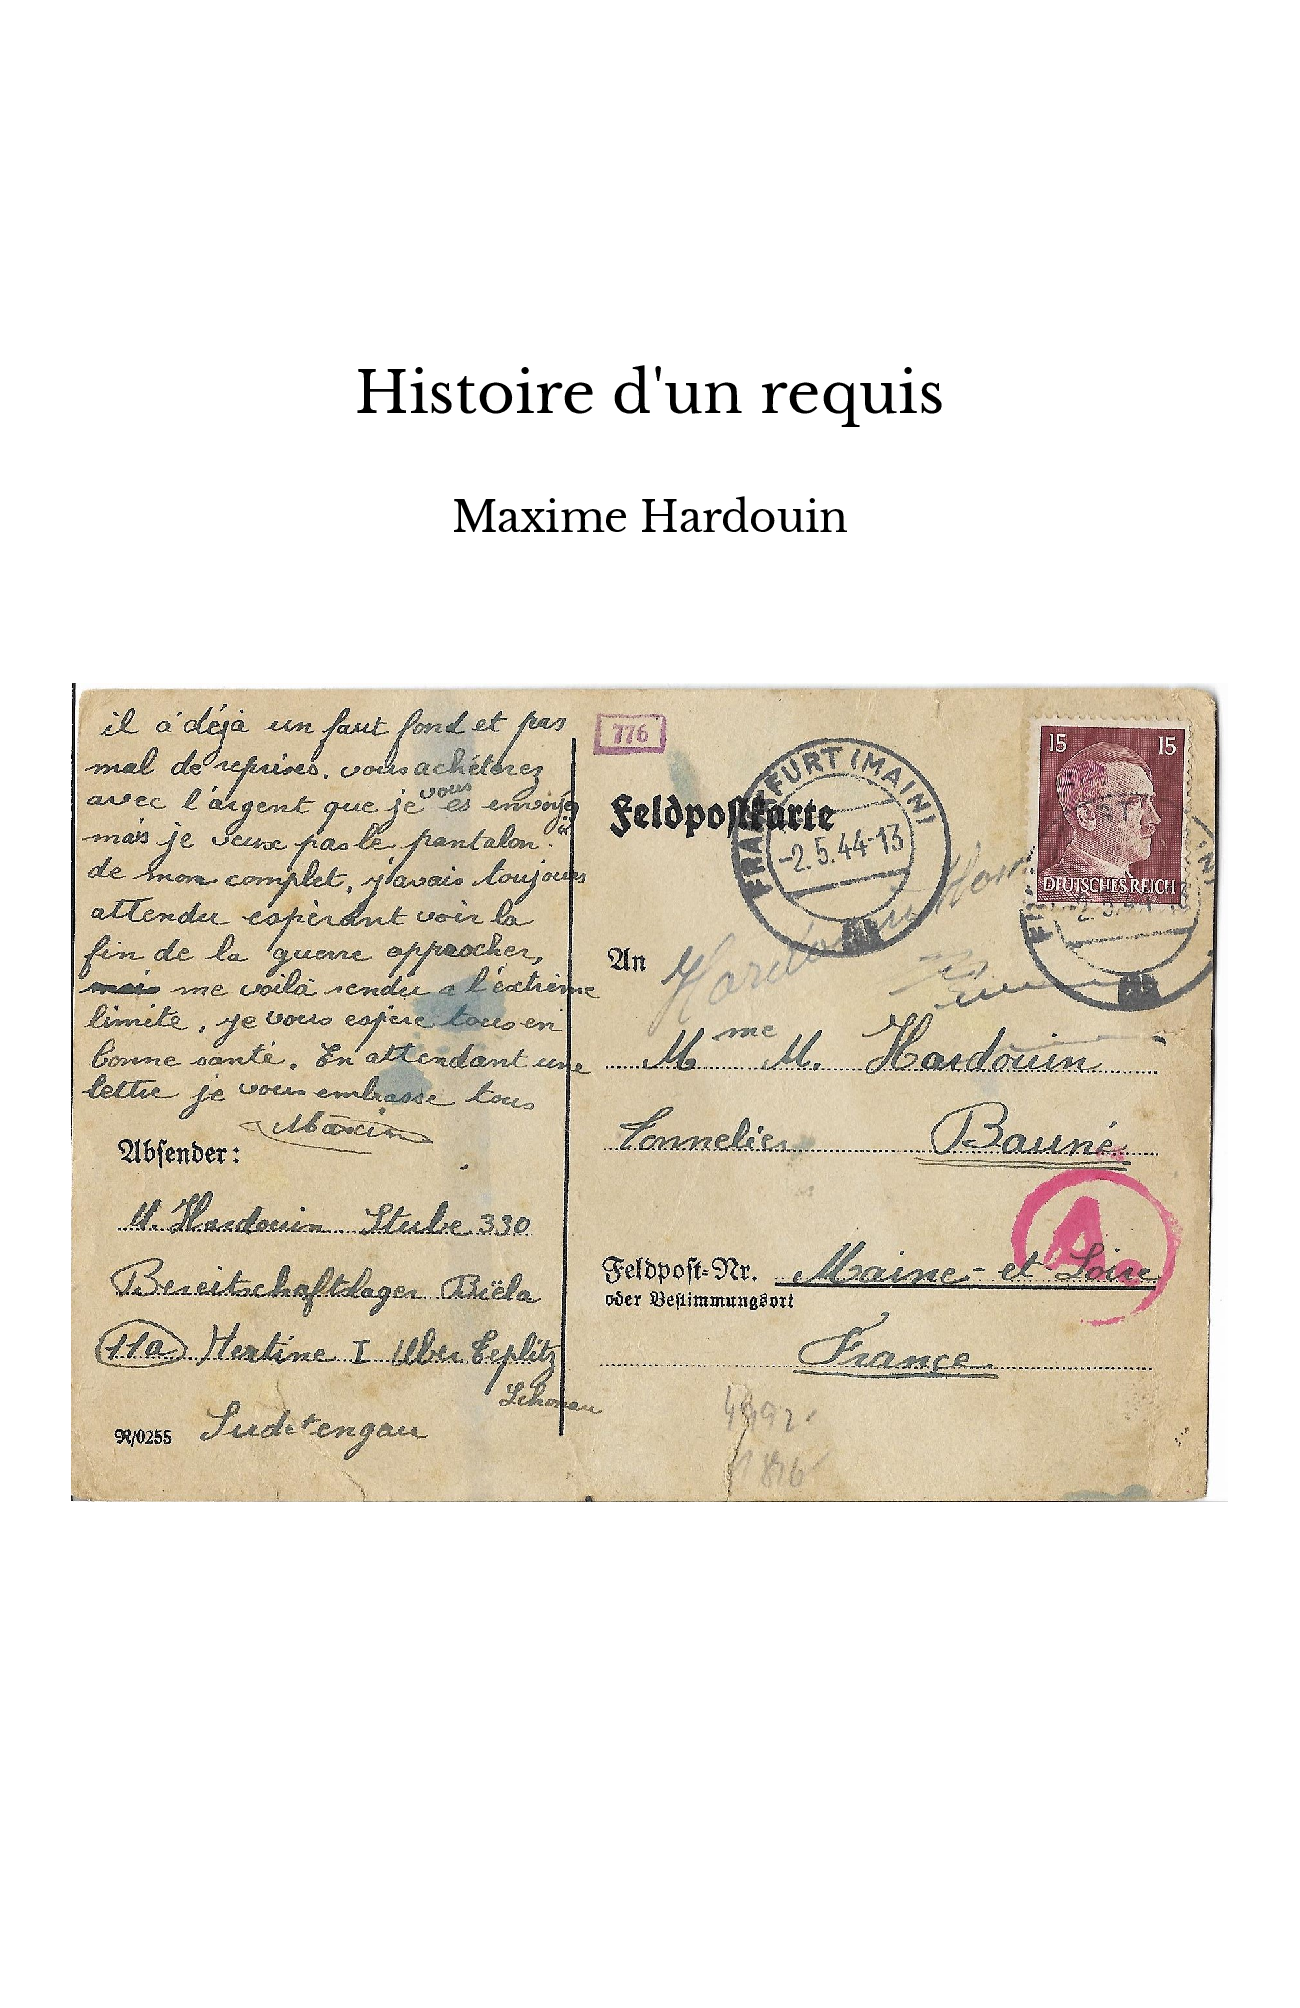 Histoire d'un requis
Maxime Hardouin
il a déjà un faut fond et pas
mal de reprises. vous achéterez
avec l'argent que je vous es envoyé
mais je veux pas le pantalon
de mon complet, j'avais toujours
attendu espèrant voir la
fin de la guerre approcher,
mais me voilà rendu a l'éxtrème
limite, je vous espère tous en
bonne santé. En attendant une
lettre je vous embrasse tous
Maxime
Absender:
M. Hardouin Stube 330
Bereitschaftslager Biela
11a Hertine I Uber Teplitz
Schonau
Sudetengau
R/0255
776
Feldpostkarte
FRANKFURT (MAIN)
-2.5.44-13
15 15
DEUTSCHES REICH
An
Mme M. Hardouin
Tonnelier Bauné
Feldpost-Nr. Maine-et Loire
oder Bestimmungsort
France